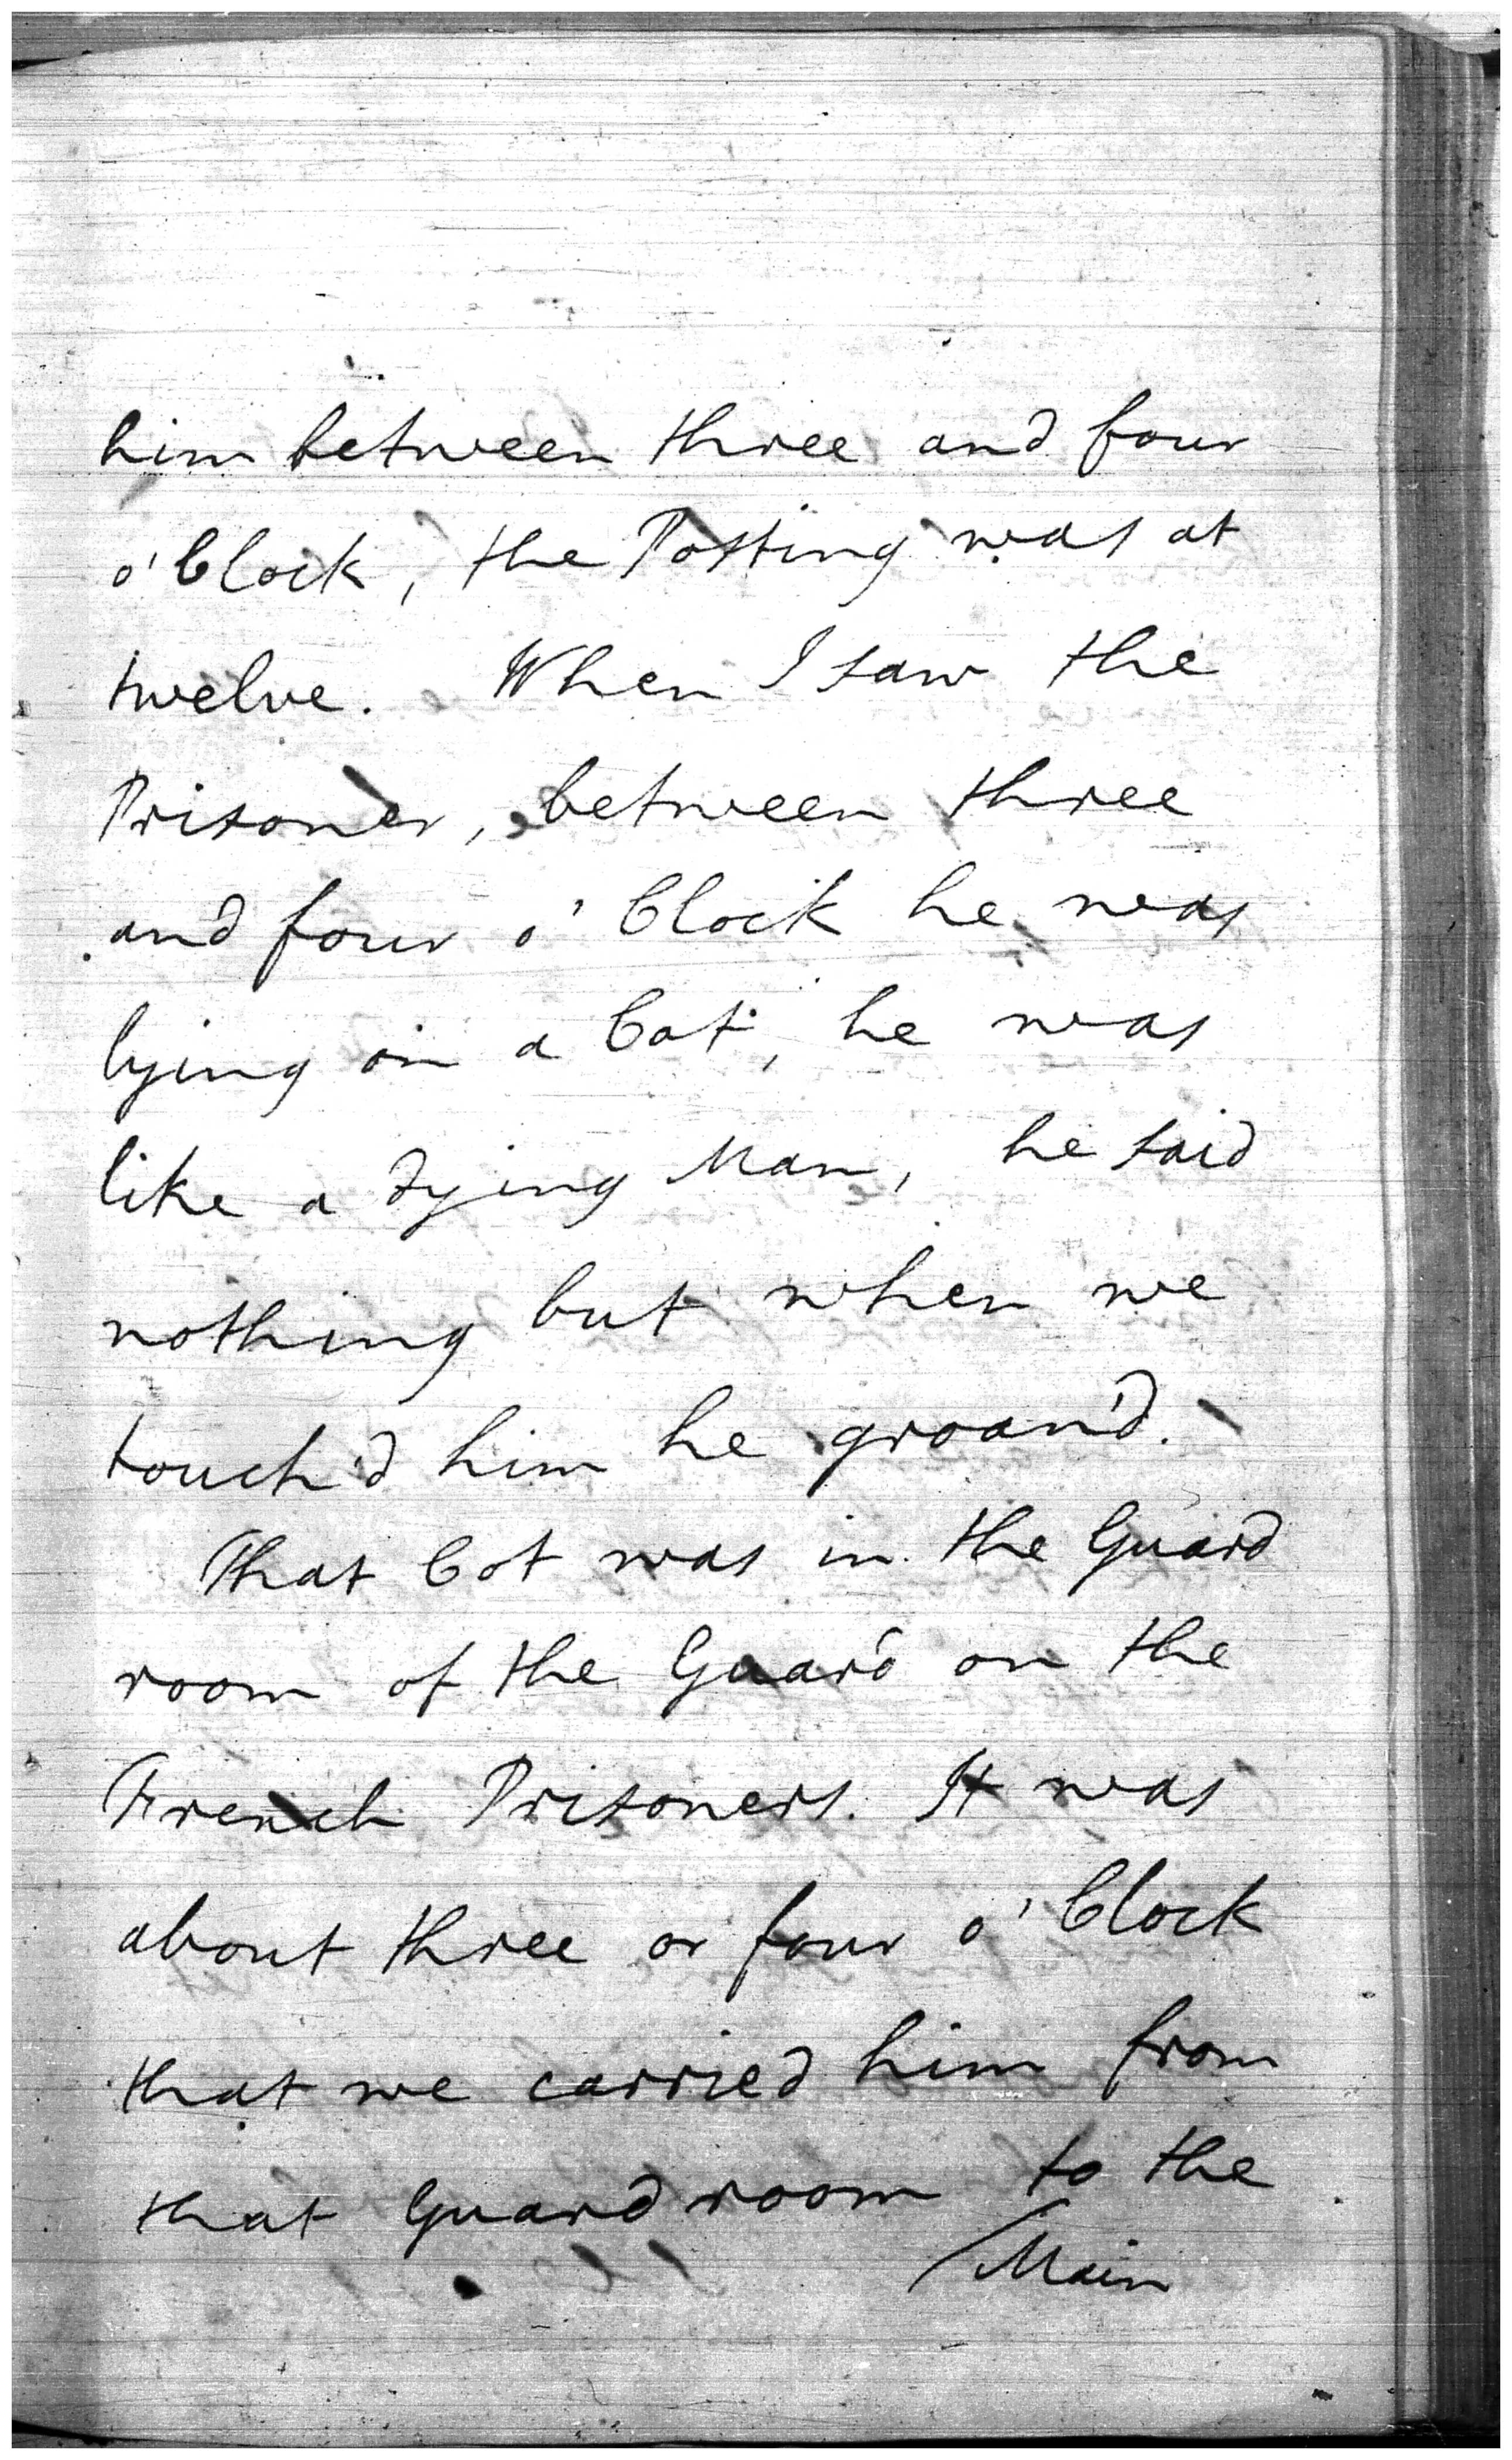 him between three and four
o'Clock, the Posting was at
twelve. When I saw the
Prisoner, between three
and four o'Clock he was
lying on a Cot, he was
like a dying Man, he said
nothing but when we
touch'd him he groan'd.
That Cot was in the Guard
room of the Guard on the
French Prisoners. It was
about three or four o'Clock
that we carried him from
that Guard room to the
Main